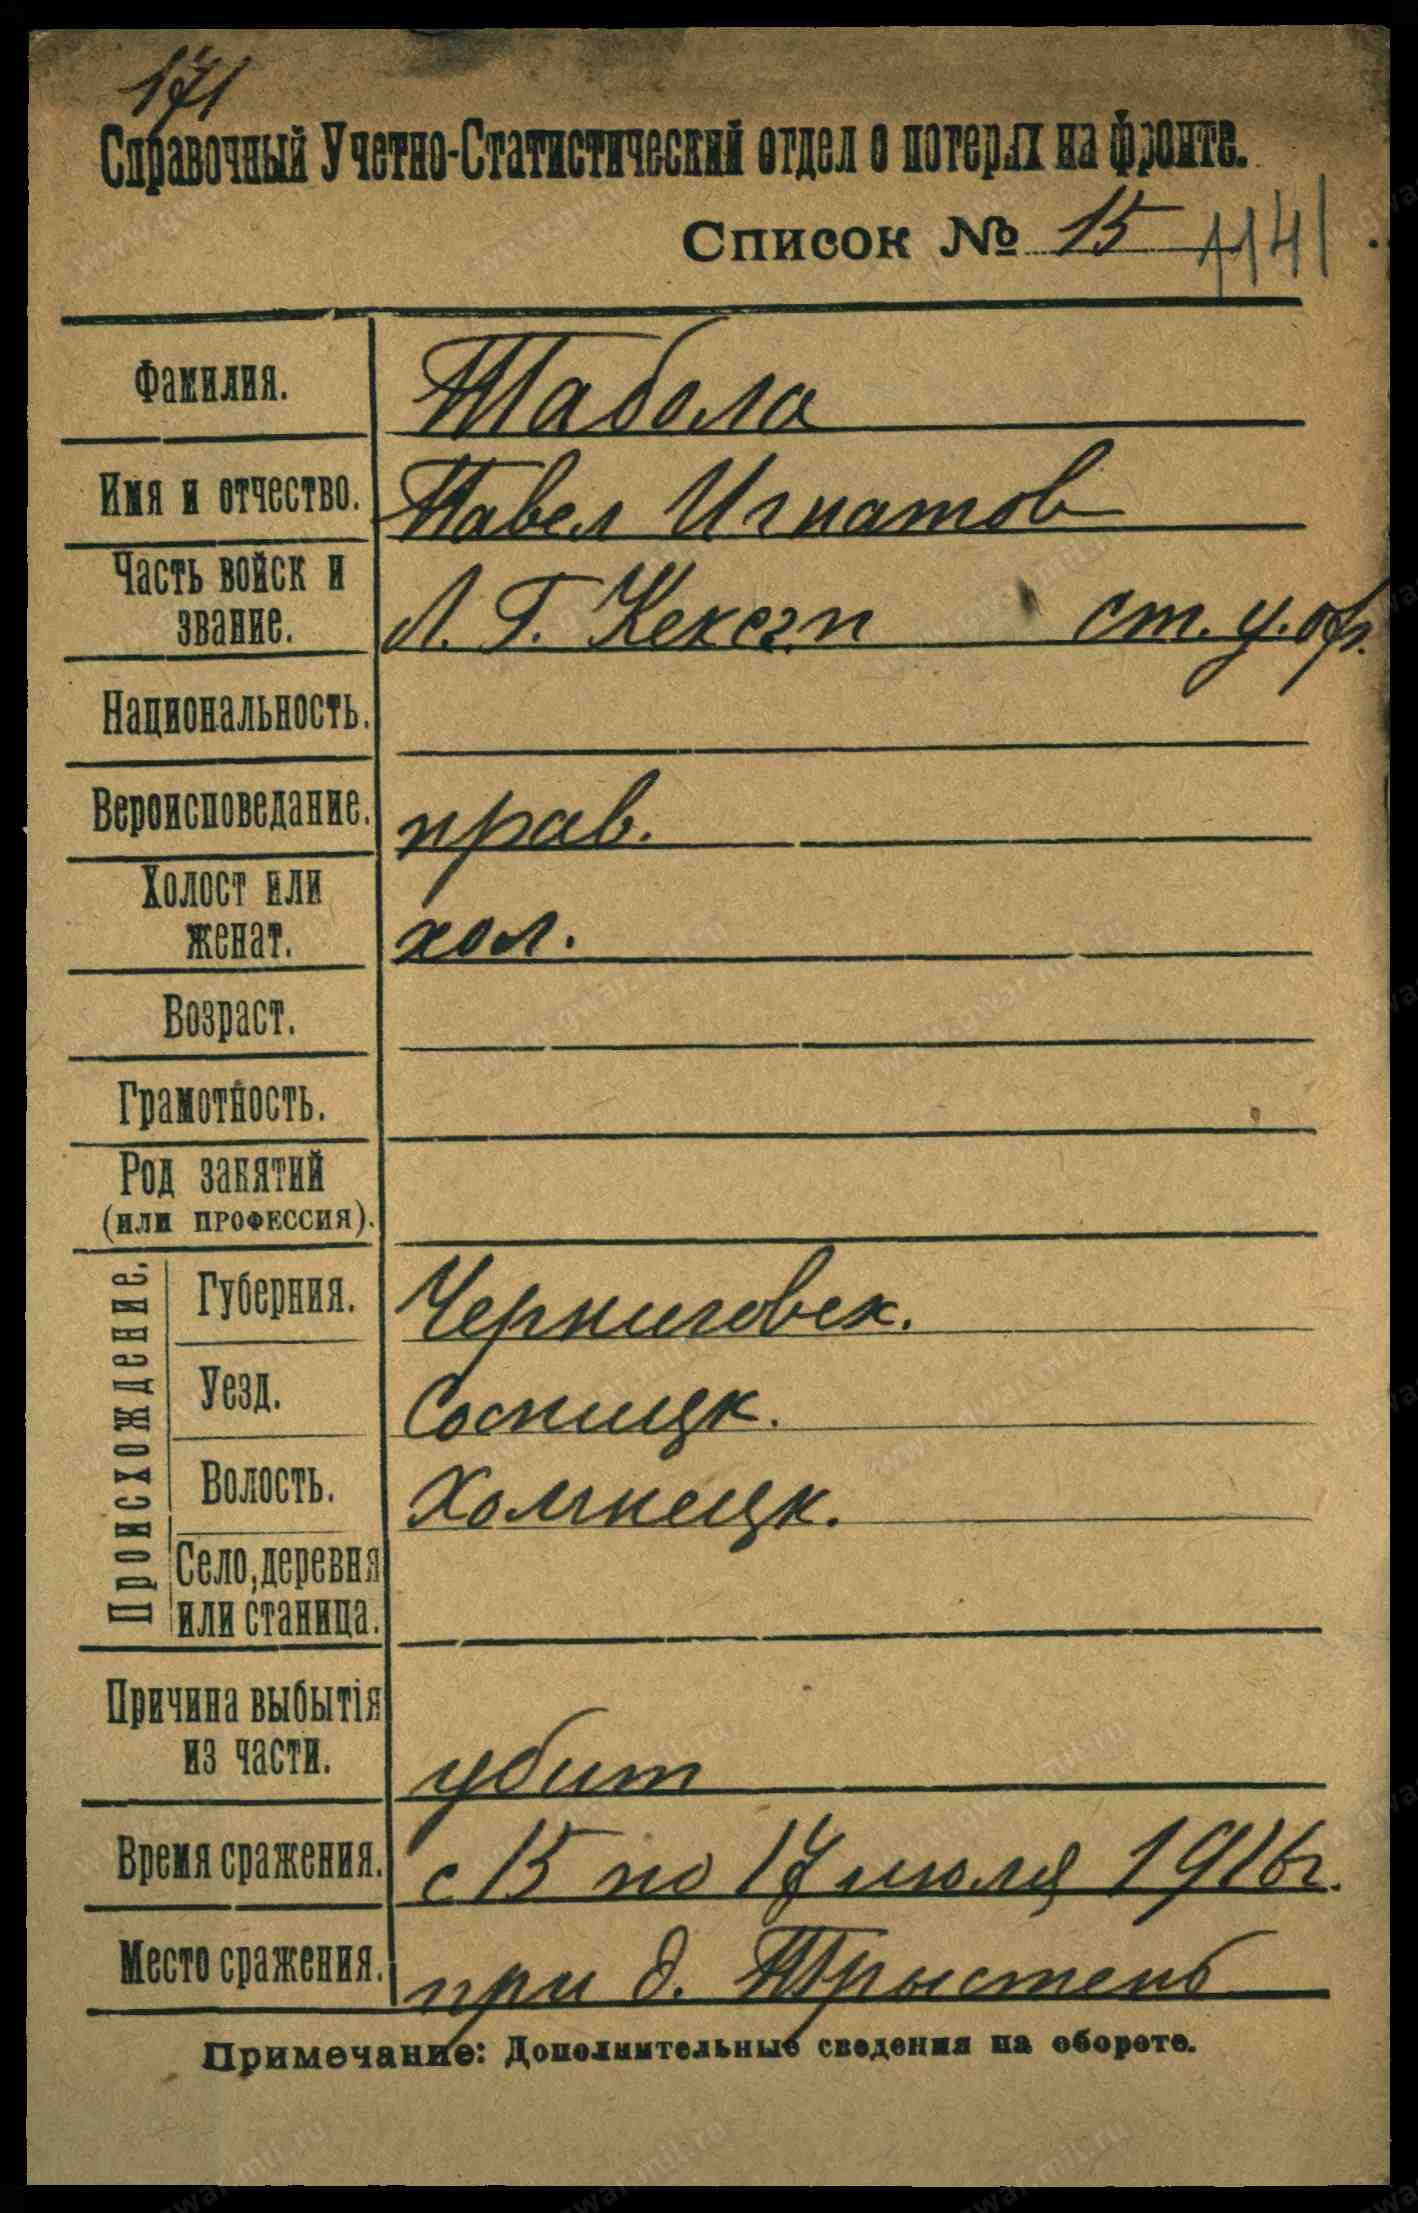 171
Справочный Учетно-Статистический отдел о потерях на фронте.
Список № 15 1141
Фамилия. Табола
Имя и отчество. Павел Игнатов
Часть войск и звание. Л. Г. Кексг. п ст. у. оф.
Национальность.
Вероисповедание. прав.
Холост или женат. хол.
Возраст.
Грамотность.
Род занятий
(или профессия).
Происхождение.
Губерния. Черниговск.
Уезд. Сосницк.
Волость. Холмнецк.
Село, деревня или станица.
Причина выбытія из части. убит
Время сражения. с 15 по 17 июля 1916 г.
Место сражения. при д. Трыстень
Примечание: Дополнительные сведения на обороте.